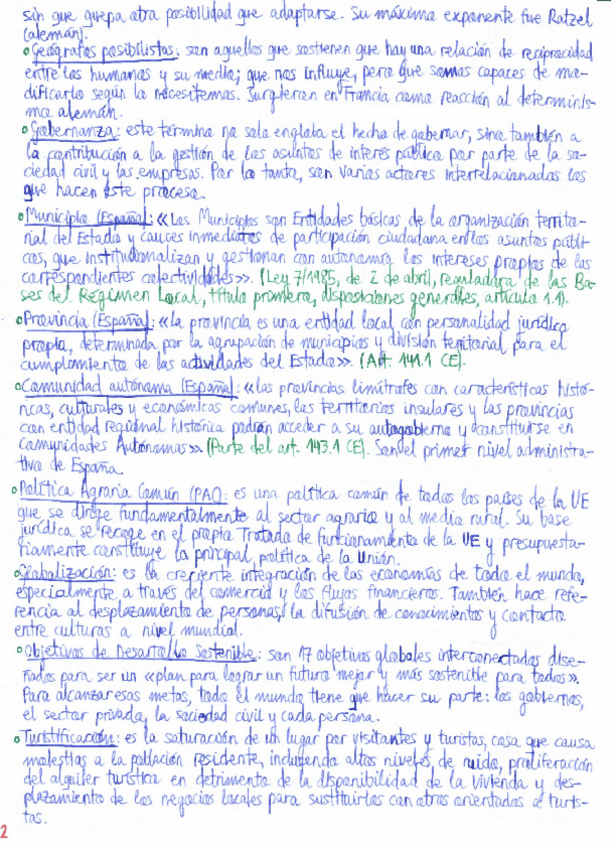 sin que quepa otra posibilidad que adaptarse. Su máximo exponente fue Ratzel
(alemán).
○Geógrafos posibilistas: son aquellos que sostienen que hay una relación de reciprocidad
entre los humanos y su medio; que nos influye, pero que somos capaces de mo-
dificarlo según lo necesitemos. Surgieron en Francia como reacción al determinis-
mo alemán.
○Gobernanza: este término no solo engloba el hecho de gobernar, sino también a
la contribución a la gestión de los asuntos de interés público por parte de la so-
ciedad civil y las empresas. Por lo tanto, son varios actores interrelacionados los
que hacen este proceso.
○Municipio (España): «Los Municipios son Entidades básicas de la organización territo-
rial del Estado y cauces inmediatos de participación ciudadana en los asuntos públi-
cos, que institucionalizan y gestionan con autonomía los intereses propios de las
correspondientes colectividades». (Ley 7/1985, de 2 de abril, reguladora de las Ba-
ses del Régimen Local, título primero, disposiciones generales, artículo 1.1).
○Provincia (España): «La provincia es una entidad local con personalidad jurídica
propia, determinada por la agrupación de municipios y división territorial para el
cumplimiento de las actividades del Estado». (Art. 141.1 CE).
○Comunidad autónoma (España): «las provincias limítrofes con características histó-
ricas, culturales y económicas comunes, los territorios insulares y las provincias
con entidad regional histórica podrán acceder a su autogobierno y constituirse en
Comunidades Autónomas» (Parte del art. 143.1 CE). Son el primer nivel administra-
tivo de España.
○Política Agraria Común (PAC): es una política común de todos los países de la UE
que se dirige fundamentalmente al sector agrario y al medio rural. Su base
jurídica se recoge en el propio Tratado de funcionamiento de la UE y presupuesta-
riamente constituye la principal política de la Unión.
○Globalización: es la creciente integración de las economías de todo el mundo,
especialmente a través del comercio y los flujos financieros. También hace refe-
rencia al desplazamiento de personas, la difusión de conocimientos y contacto
entre culturas a nivel mundial.
○Objetivos de Desarrollo Sostenible: son 17 objetivos globales interconectados dise-
ñados para ser un «plan para lograr un futuro mejor y más sostenible para todos».
Para alcanzar esas metas, todo el mundo tiene que hacer su parte: los gobiernos,
el sector privado, la sociedad civil y cada persona.
○Turistificación: es la saturación de un lugar por visitantes y turistas, cosa que causa
molestias a la población residente, incluyendo altos niveles de ruido, proliferación
del alquiler turístico en detrimento de la disponibilidad de la vivienda y des-
plazamiento de los negocios locales para sustituirlos con otros orientados a turis-
tas.
2